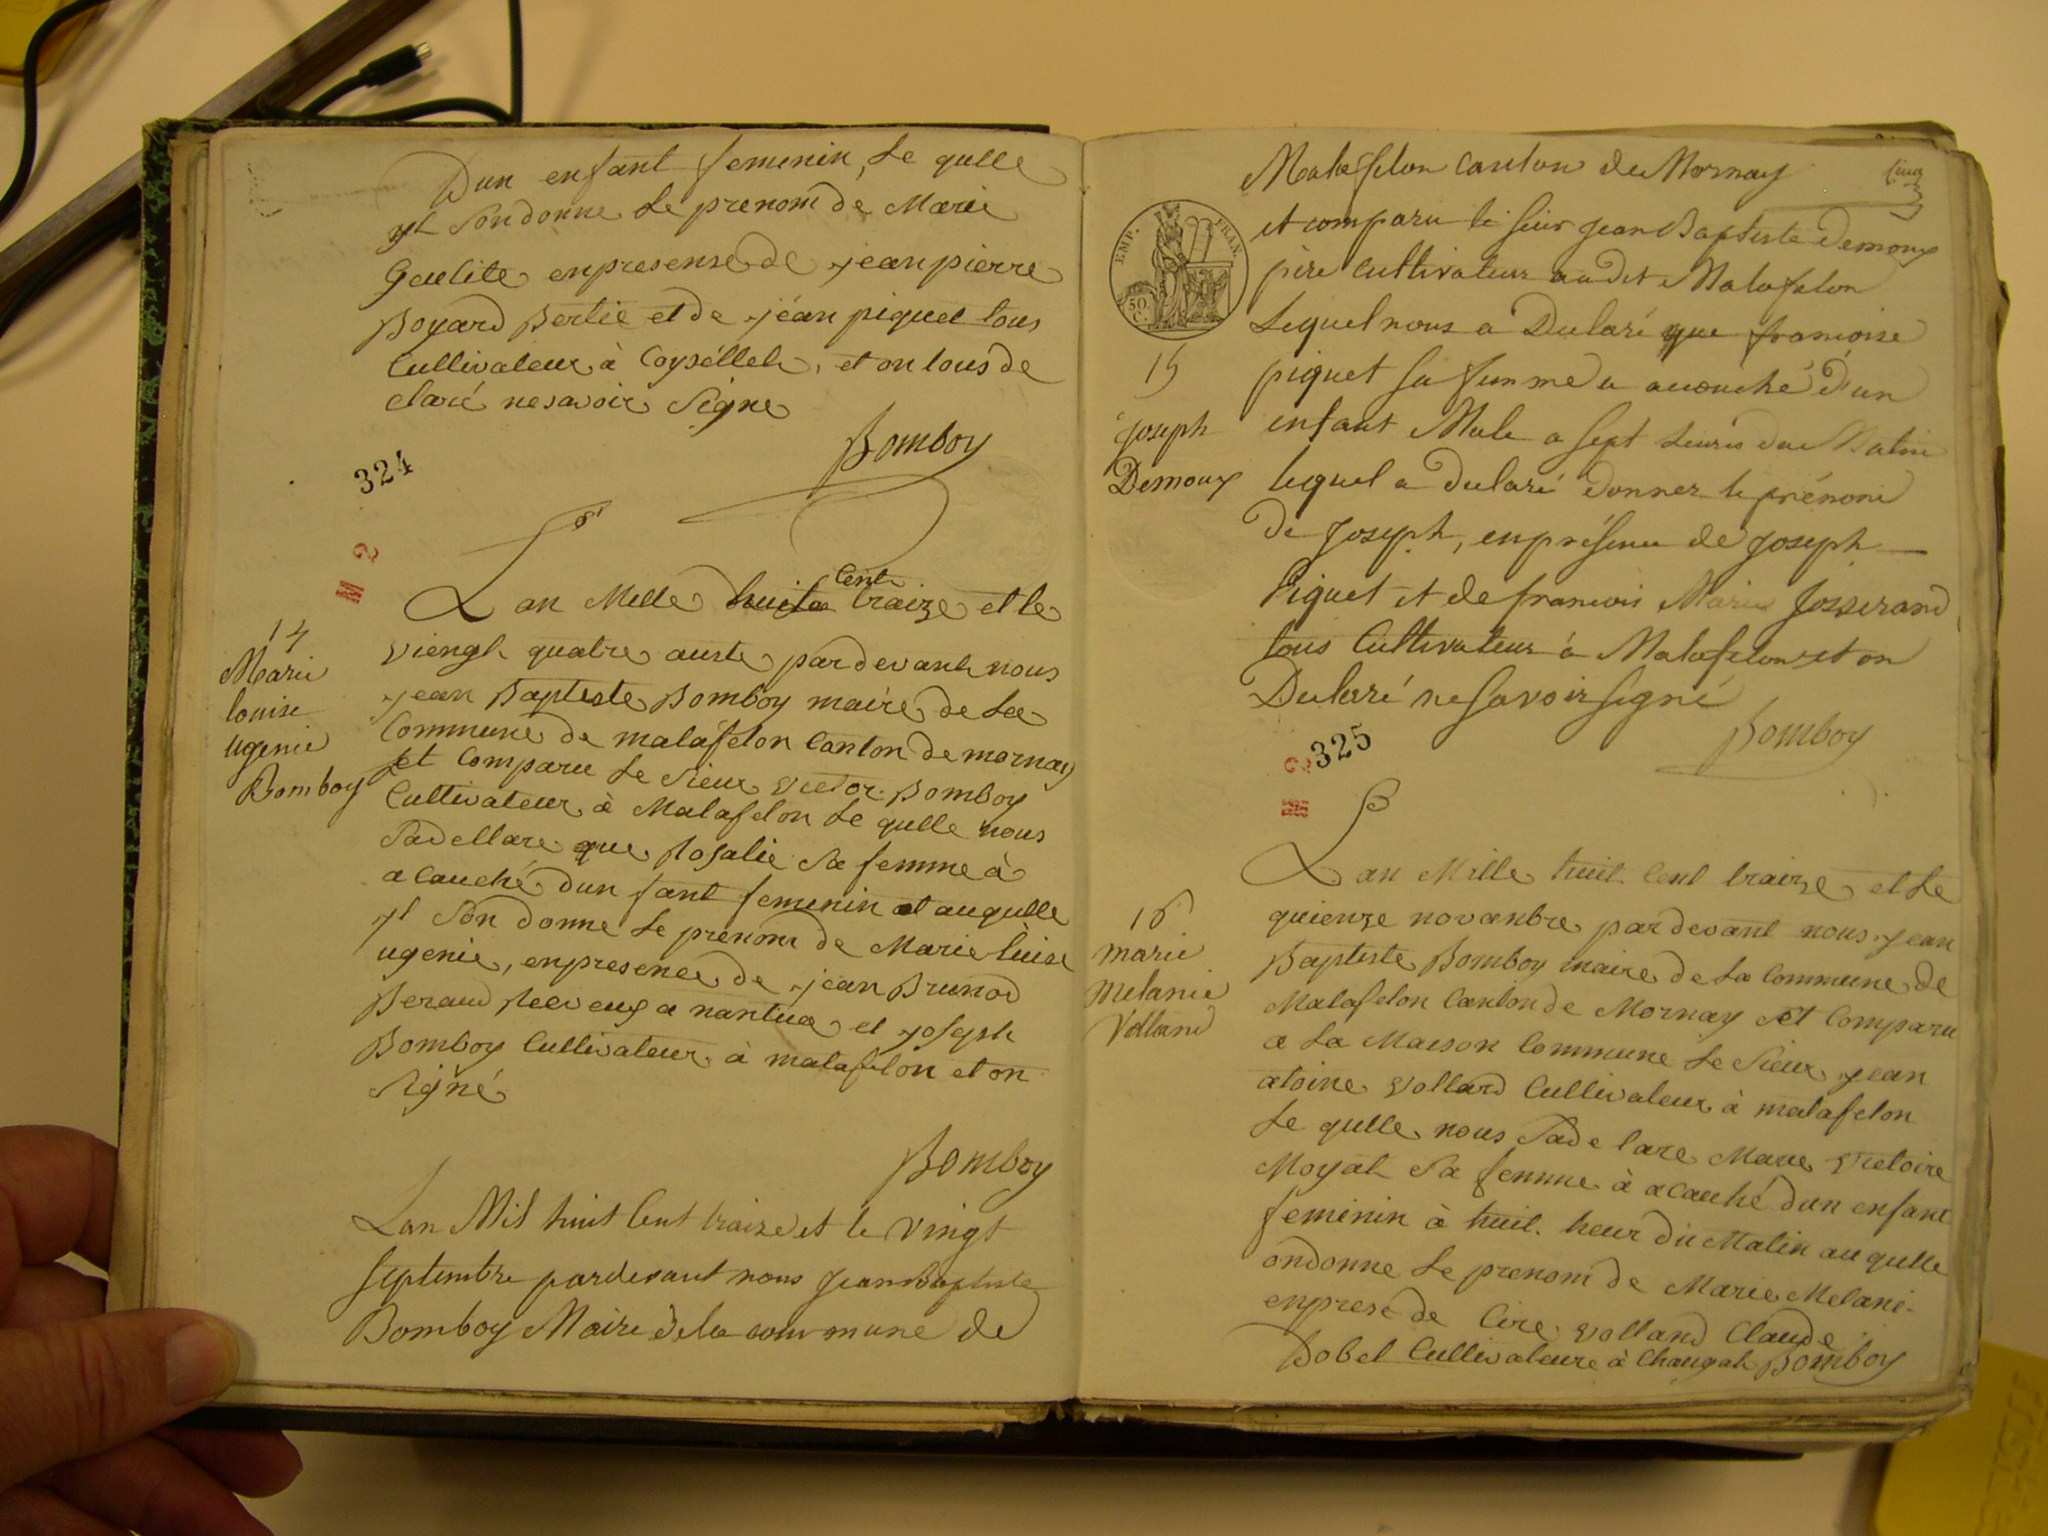 Dun enfant femenin, Le qulle
yl Son donne Le prenom de Marie
en presense de jean pierre
Boyard Bertie et de jéan piquet tous
Cultivateur à Coyséllet, et on tous de
claré ne savoir Signe
Bomboy
324
2
Lan Mille huite Cent traize et le
viengt quatre auste par devant nous
jean Baptiste Bomboy maire de La
Commune de malafelon Canton de mornay
et Comparu Le Sieur Victor Bomboy
Cultivateur à Malafelon Le qulle nous
Sadellare que Rosalie Sa femme à
acauché dun fant femenin et auqulle
yl Son donne Le prenom de Marie luise
ugenie, en presence de jean Brunod
Beraud a nantua et joseph
Bomboy Cultivateur à malafelon et on
Signé
Bomboy
14
Marie
louise
ugenie
Bomboy
Lan Mil huit Cent traize et le vingt
septembre pardevant nous Jean Baptiste
Bomboy Maire de la commune de
Malafelon Canton de Mornay
Cinq
et comparu le sieur Jean Baptiste Demoux
père Cultivateur audit Malafelon
Lequel nous a Dularé que francoise
piquet sa funme a accouché d'un
enfant Male a sept heures du Matin
lequel a Dularé donner le prénom
de Joseph, en présence de Joseph
Piquet et de francois Marie Josserand
tous Cultivateur à Malafelon et on
Dularé ne Savoir signé
Bomboy
EMP. FRAN.
50 C.
15
Joseph
Demoux
325
2
Lan Mille huit Cent traize et Le
quienze novanbre par devant nous jean
Baptiste Bomboy maire de La Commune de
Malafelon Canton de Mornay et Comparu
a La Maison Commune Le Sieur jean
atoine Volland Cultivateur à malafelon
Le qulle nous Sade lare Marie Victoire
Moyat Sa femme à acauché dun enfant
feminin à huit heur du Matin au qulle
ondonne Le prenom de Marie Melani
en prese de Cire Volland Claude
Bobel Cultivateure à Changat Bomboy
16
marie
Melanie
Volland